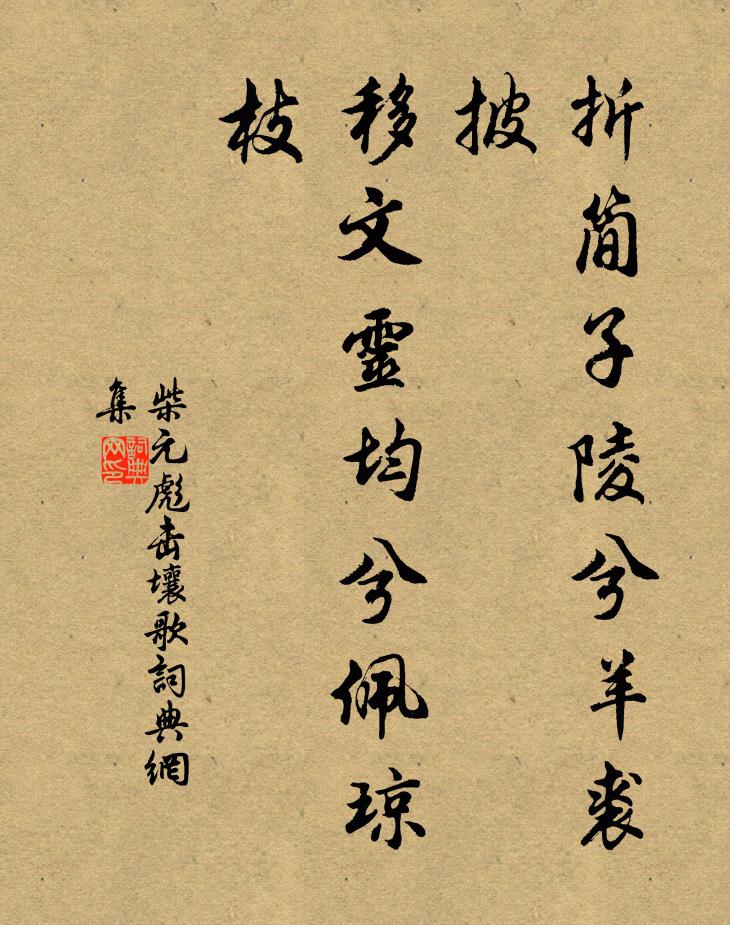 折简子陵兮羊裘
披
移文靈均兮佩琼
枝
柴元彪击壤歌詞典網
集
詞典
网印